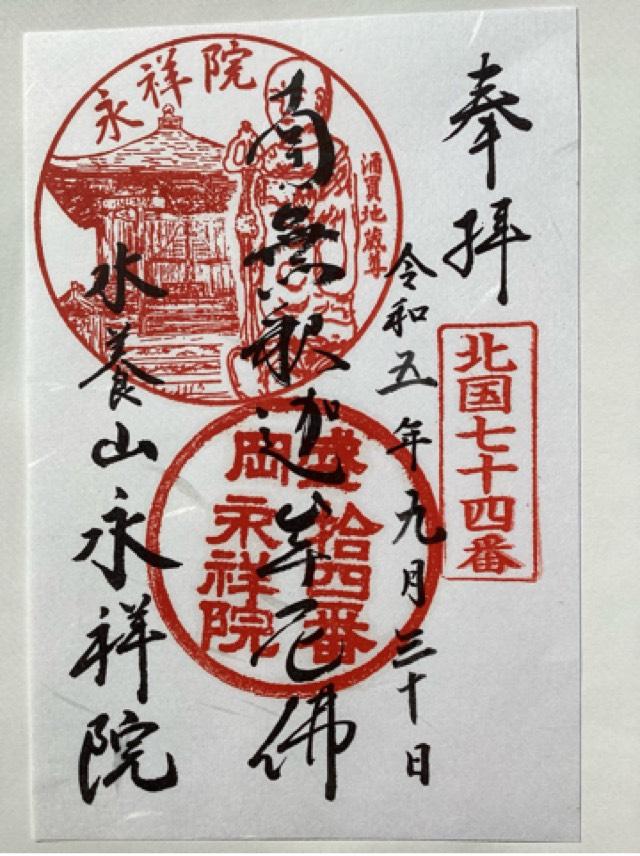 奉拝
北国七十四番
令和五年九月三十日
酒買地蔵尊
南無釈迦牟尼佛
永祥院
盛拾四番
岡永祥院
水養山永祥院